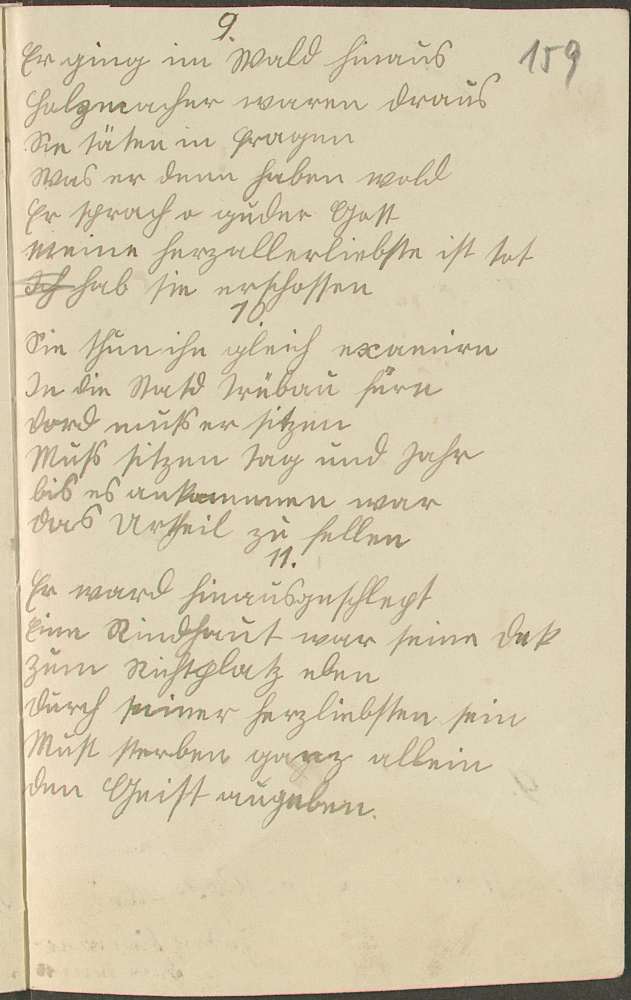 9.
159
Er ging im Wald hinaus
Holzmacher waren draus
Sie täten in fragen
Was er denn haben wold
Er sprach o guder Gott
Meine herzallerliebste ist tot
Ich hab sie erschossen
10
Sie thun ihn gleich examirn
In die Statd Trübau fürn
dord muß er sitzen
Muß sitzen Tag und Jahr
bis es ankommen war
das Urtheil zu fellen
11.
Er ward hinausgeschlept
Eine Rindhaut war seine Dek
zum Richtplatz eben
durch seiner herzliebsten sein
Must sterben ganz allein
den Geist aufgeben.